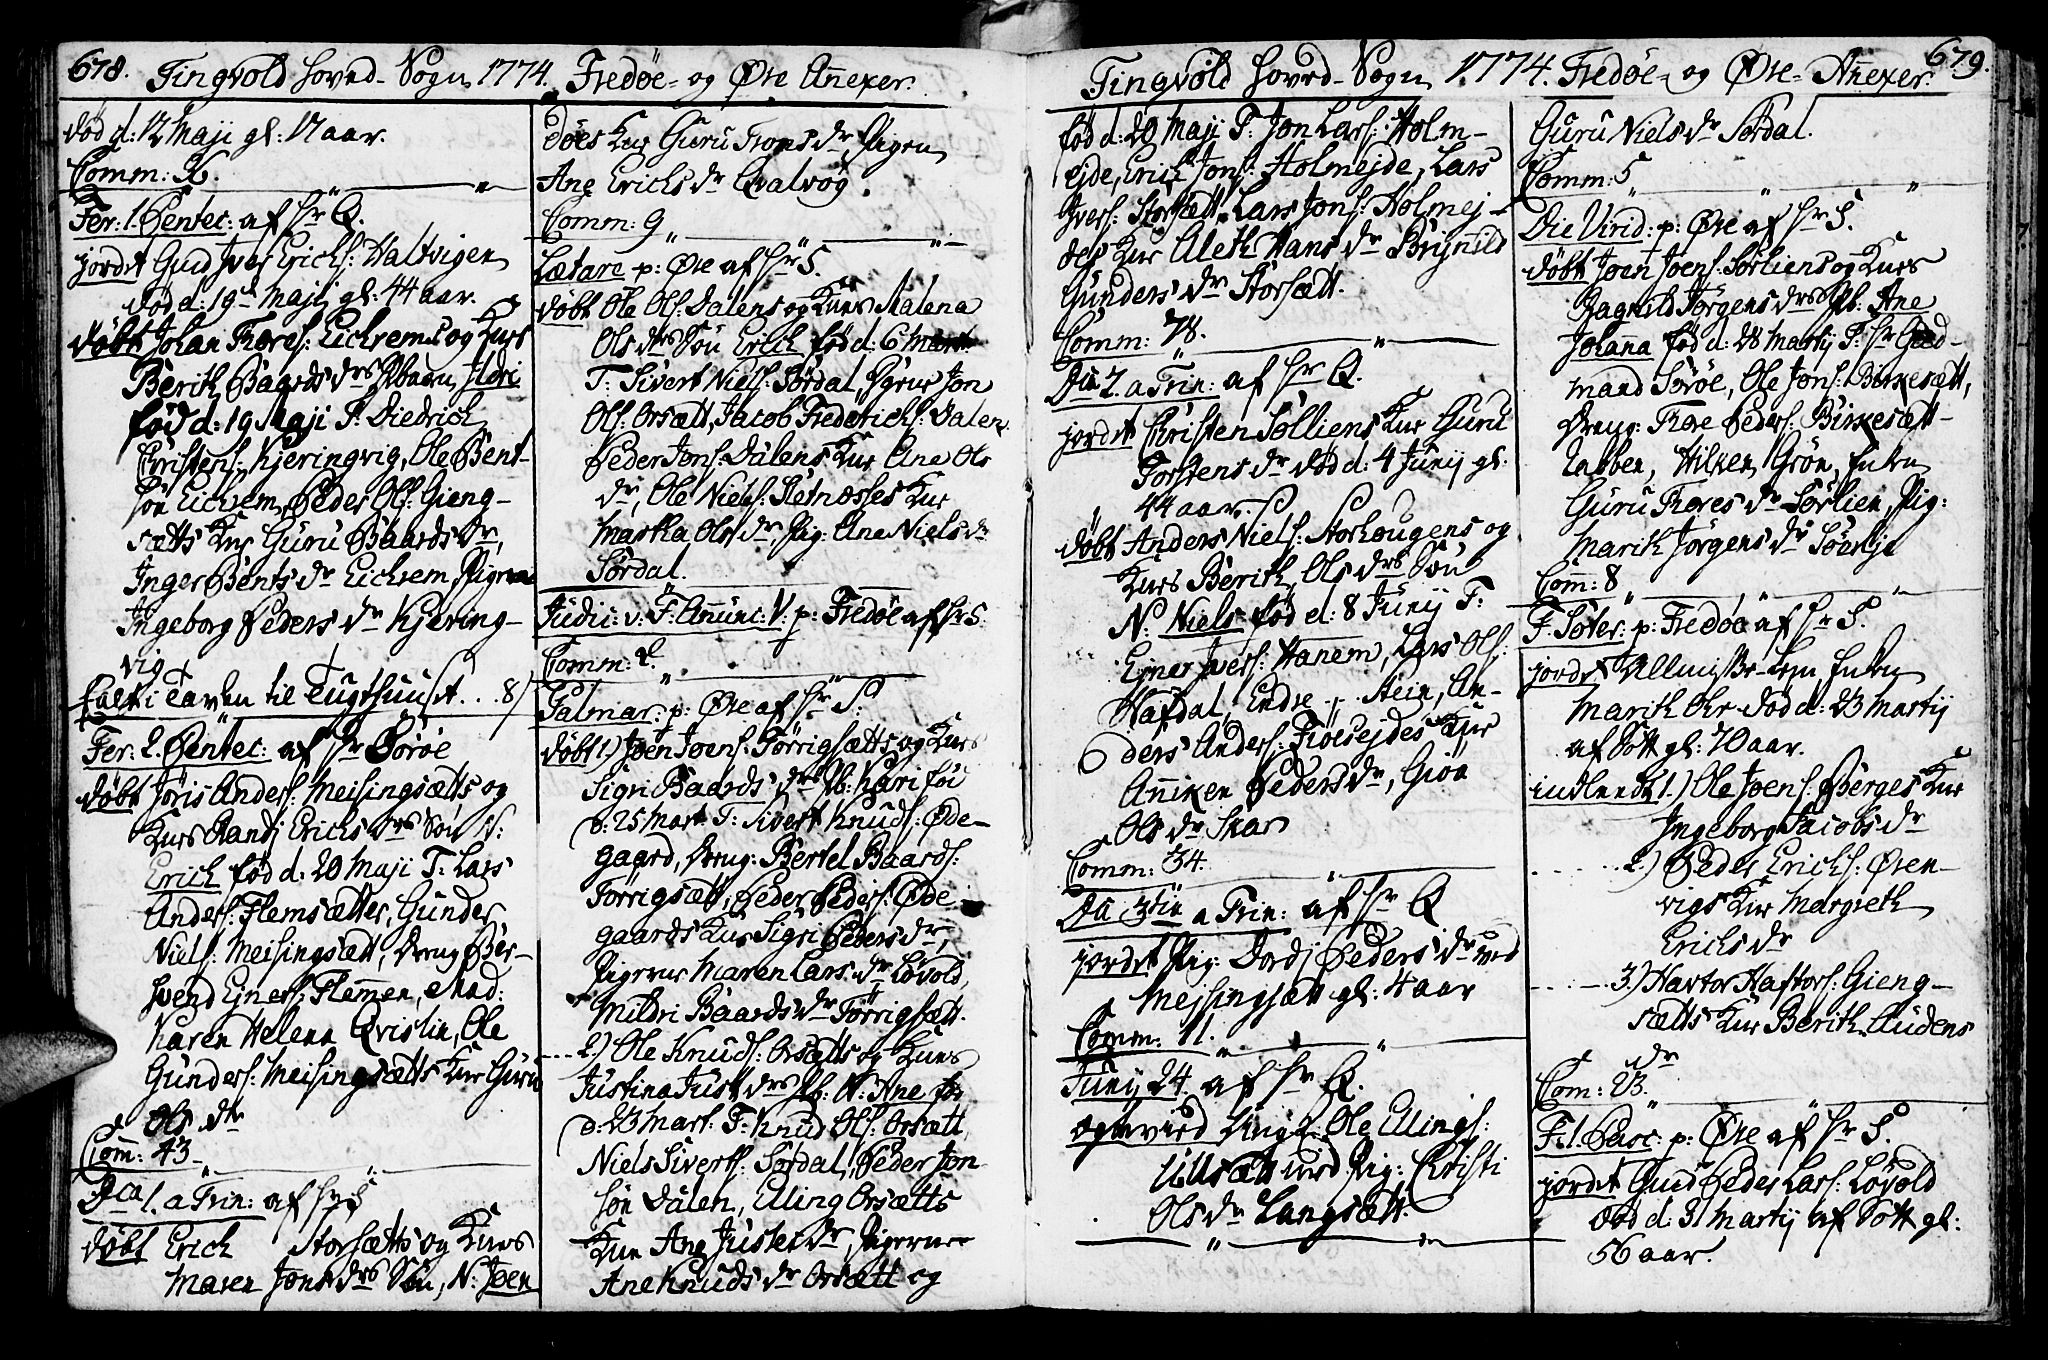 678. Tingvold Hoved-Sogn 1774. Fredøe- og Øre Annexer.
død d: 12 Maji gl: 17 aar.
Comm: X.
Fer: 1. Pentec: af Hr Q.
jordet Gud Iver Erichs: Waltvigen
død d: 19d Maji gl: 44 aar.
døbt Johan Thores: Eichrems og Kurs
Berith Baards drs Pbarn, Ildri
fød d: 19 Maji T: Diedrich
Christens: Kjeringvig, Ole Bent-
søn Eichrem, Peder Ols: Gieng-
sætts Kur Guru Baards dr,
Inger Bents dr Eichrem, Pigen
Ingeborg Peders dr Kjering-
vig
faldt i Tavlen til Tugthuuset .. 8 s
Fer: 2. Pentec: af Hr Sørøe
døbt Jøris Anders: Meisingsætts og
Kurs Randi Erichs drs Søn N:
Erich fød d: 20 Maji T: Lars
Anders: Flemsætter, Gunder
Niels: Meisingsætt, Dreng Ber-
hvend Ejners: Flemmen, Mad:
Karen Helena Qvislin, Ole
Gunders: Meisingsætts Kur Guru
Ols dtr
Com: 43
Dca 1. a Trin: af Hr S
døbt Erich Storsætts og Kurs
Maren Jons drs Søn, N: Joen
døes Kur Guru Trons dr, Pigen
Ane Erichs dr Qvalvøg.
Comm: 9
Lætare p: Øre af Hr S.
døbt Ole Ols: Dalens og Kurs Malena
Ols drs Søn Erich fød d: 6 Mart:
T: Sivert Niels: Sørdal, Pigens Jon
Ols: Orsætt, Jacob Frederichs: Dalen,
Peder Jons: Dalens Kur Ane Ols
dr, Ole Niels: Sletnæsses Kur
Martha Ols dr, Pig: Ane Niels dr
Sørdal.
Judic: v: F. Annunc: V: p: Fredøe af Hr S.
Comm: 2.
Palmar: p: Øre af Hr S:
døbt 1.) Joen Joens: Torrigsætts og Kurs
Sigri Baards drs Pb: Kari fød
d: 25 Mart: T: Sivert Knuds: Øde-
gaard, Dreng: Bertel Baards:
Torrigsætt, Peder Peders: Øde-
gaards Kur Sigri Peders dr,
Pigerne Maren Lars dr Løvold,
Mildri Baards dr Torrigsætt.
2.) Ole Knuds: Orsætts og Kurs
Justina Just drs Pb: N: Ane fød
d: 23 Mart: T: Knud Ols: Orsætt,
Niels Siverts: Sørdal, Peder Jon-
søn Dalen, Elling Orsætts
Kur Ane Juster dr, Pigerne
Ane Knuds dr Orsætt og
Tingvold Hoved-Sogn 1774. Fredøe- og Øre- Annexer. 679.
fød d: 20 Maji T: Jon Lars: Holm-
ejde, Erich Jons: Holmejde, Lars
Ivers: Storsætt, Lars Jons: Holmej-
des Kur Aleth Hans dr Brynild
Gunders dr Storsætt.
Comm: 78.
Da 2. a Trin: af Hr Q.
jordet Christen Solliens Kur Guru
Torstens dr død d: 4 Junij gl:
44 aar.
døbt Anders Niels: Storhougens og
Kurs Berith Ols drs Søn
N: Niels fød d: 8 Junij T:
Ejner Ivers: Hanem, Lars Ols:
Hafdal, Endre Stein, An-
ders Anders: Floesejdes Kur
Anniken Peders dr, Gioa
Ols dr Skar
Comm: 34.
Da 3tia a Trin: af Hr Q
jordet Pig: Dordj Peders dr ved
Mejsingsætt gl: 4 aar
Comm: 11.
Junij 24. af Hr Q.
Ole Ellings:
Ulsætt med Pig: Christi
Ols dr Langsætt.
Guru Niels dr Sørdal.
Comm: 5
Die Virid: p: Øre af Hr S.
døbt Joen Joens: Sørliens og Kurs
Ragnild Jørgens drs Pb: Ane
Johana fød d: 28 Martij T: Hr Gud-
mand Sørøe, Ole Jons: Birkesætt,
Dreng: Thore Peders: Birkesætt-
labben, Hilken Grøn, Enken
Guru Thores dr Sørlien, Pig:
Marith Jørgens dr Søvigs
Com: 8
F. Søter: p: Fredøe af Hr S.
jordet Allmisse-Lem Enken
Marith Ohr død d: 23 Martij
af Sott gl: 70 aar.
indledt 1.) Ole Joens: Berges Kur
Ingeborg Jacobs dr
2.) Peder Erichs: Øren-
vigs Kur Margreth
Erichs dr
3.) Hartor Haftors: Gieng-
sætts Kur Berith Audens
dr
Com: 23.
F. 1. Pasc: p: Øre af Hr S.
jordet Gud Peder Lars: Løvold
død d: 31 Martij af Sott gl:
56 aar.